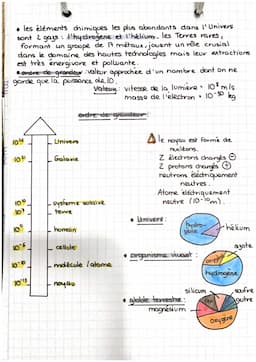 • les éléments chimiques les plus abondants dans l'Univers
sont 2 gaz : l'hydrogène et l'hélium. les Terres rares,
formant un groupe de 17 métaux, jouent un rôle crucial
dans le domaine des hautes technologies mais leur extractions
est très énergivore et polluante.
• ordre de grandeur : valeur approchée d'un nombre dont on ne
garde que la puissance de 10.
Valeurs : vitesse de la lumière = 10⁸ m/s
masse de l'électron = 10⁻³⁰ kg
ordre de grandeur :
Univers
Galaxie
système solaire
terre
humain
cellule
molécule / atome
noyau
le noyau est formé de
nucléons.
Z électrons chargés ⊖
Z protons chargés ⊕
neutrons électriquement
neutres.
Atome électriquement
neutre (10⁻¹⁰ m).
• Univers :
hydrogène
hélium
• organisme vivant :
azote
hydrogène
• globe terrestre :
silicium
soufre
autre
magnésium
oxygène